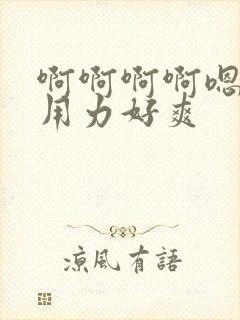 啊啊啊啊嗯
用力好爽
凉風有語